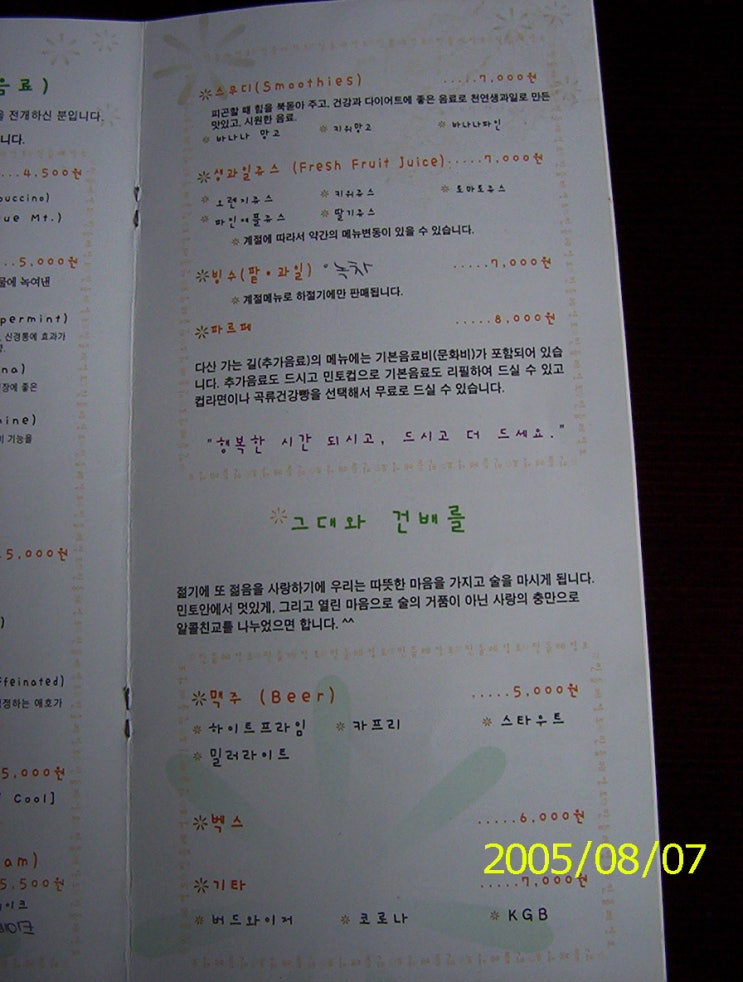 음료)
을 전개하신 분입니다.
니다.
...4,500원
puccino)
ue Mt.)
..5,000원
물에 녹여낸
permint)
, 신경통에 효과가
na)
장에 좋은
ine)
기능을
5,000원
)
ffeinated)
정하는 애호가
5,000원
Cool]
am)
5.500원
이크
스무디(Smoothies) ....7,000원
피곤할 때 힘을 북돋아 주고, 건강과 다이어트에 좋은 음료로 천연생과일로 만든
맛있고, 시원한 음료.
바나나 망고 키위망고 바나나파인
생과일쥬스 (Fresh Fruit Juice).....7,000원
오렌지쥬스 키위쥬스 토마토쥬스
파인애플쥬스 딸기쥬스
계절에 따라서 약간의 메뉴변동이 있을 수 있습니다.
빙수(팥•과일) •녹차 .....7,000원
계절메뉴로 하절기에만 판매됩니다.
파르페 .....8,000원
다산 가는 길(추가음료)의 메뉴에는 기본음료비(문화비)가 포함되어 있습
니다. 추가음료도 드시고 민토컵으로 기본음료도 리필하여 드실 수 있고
컵라면이나 곡류건강빵을 선택해서 무료로 드실 수 있습니다.
"행복한 시간 되시고, 드시고 더 드세요."
그대와 건배를
젊기에 또 젊음을 사랑하기에 우리는 따뜻한 마음을 가지고 술을 마시게 됩니다.
민토안에서 멋있게, 그리고 열린 마음으로 술의 거품이 아닌 사랑의 충만으로
알콜친교를 나누었으면 합니다. ^^
맥주 (Beer) .....5,000원
하이트프라임 카프리 스타우트
밀러라이트
벡스 .....6,000원
기타 .....7,000원
버드와이저 코로나 KGB
2005/08/07